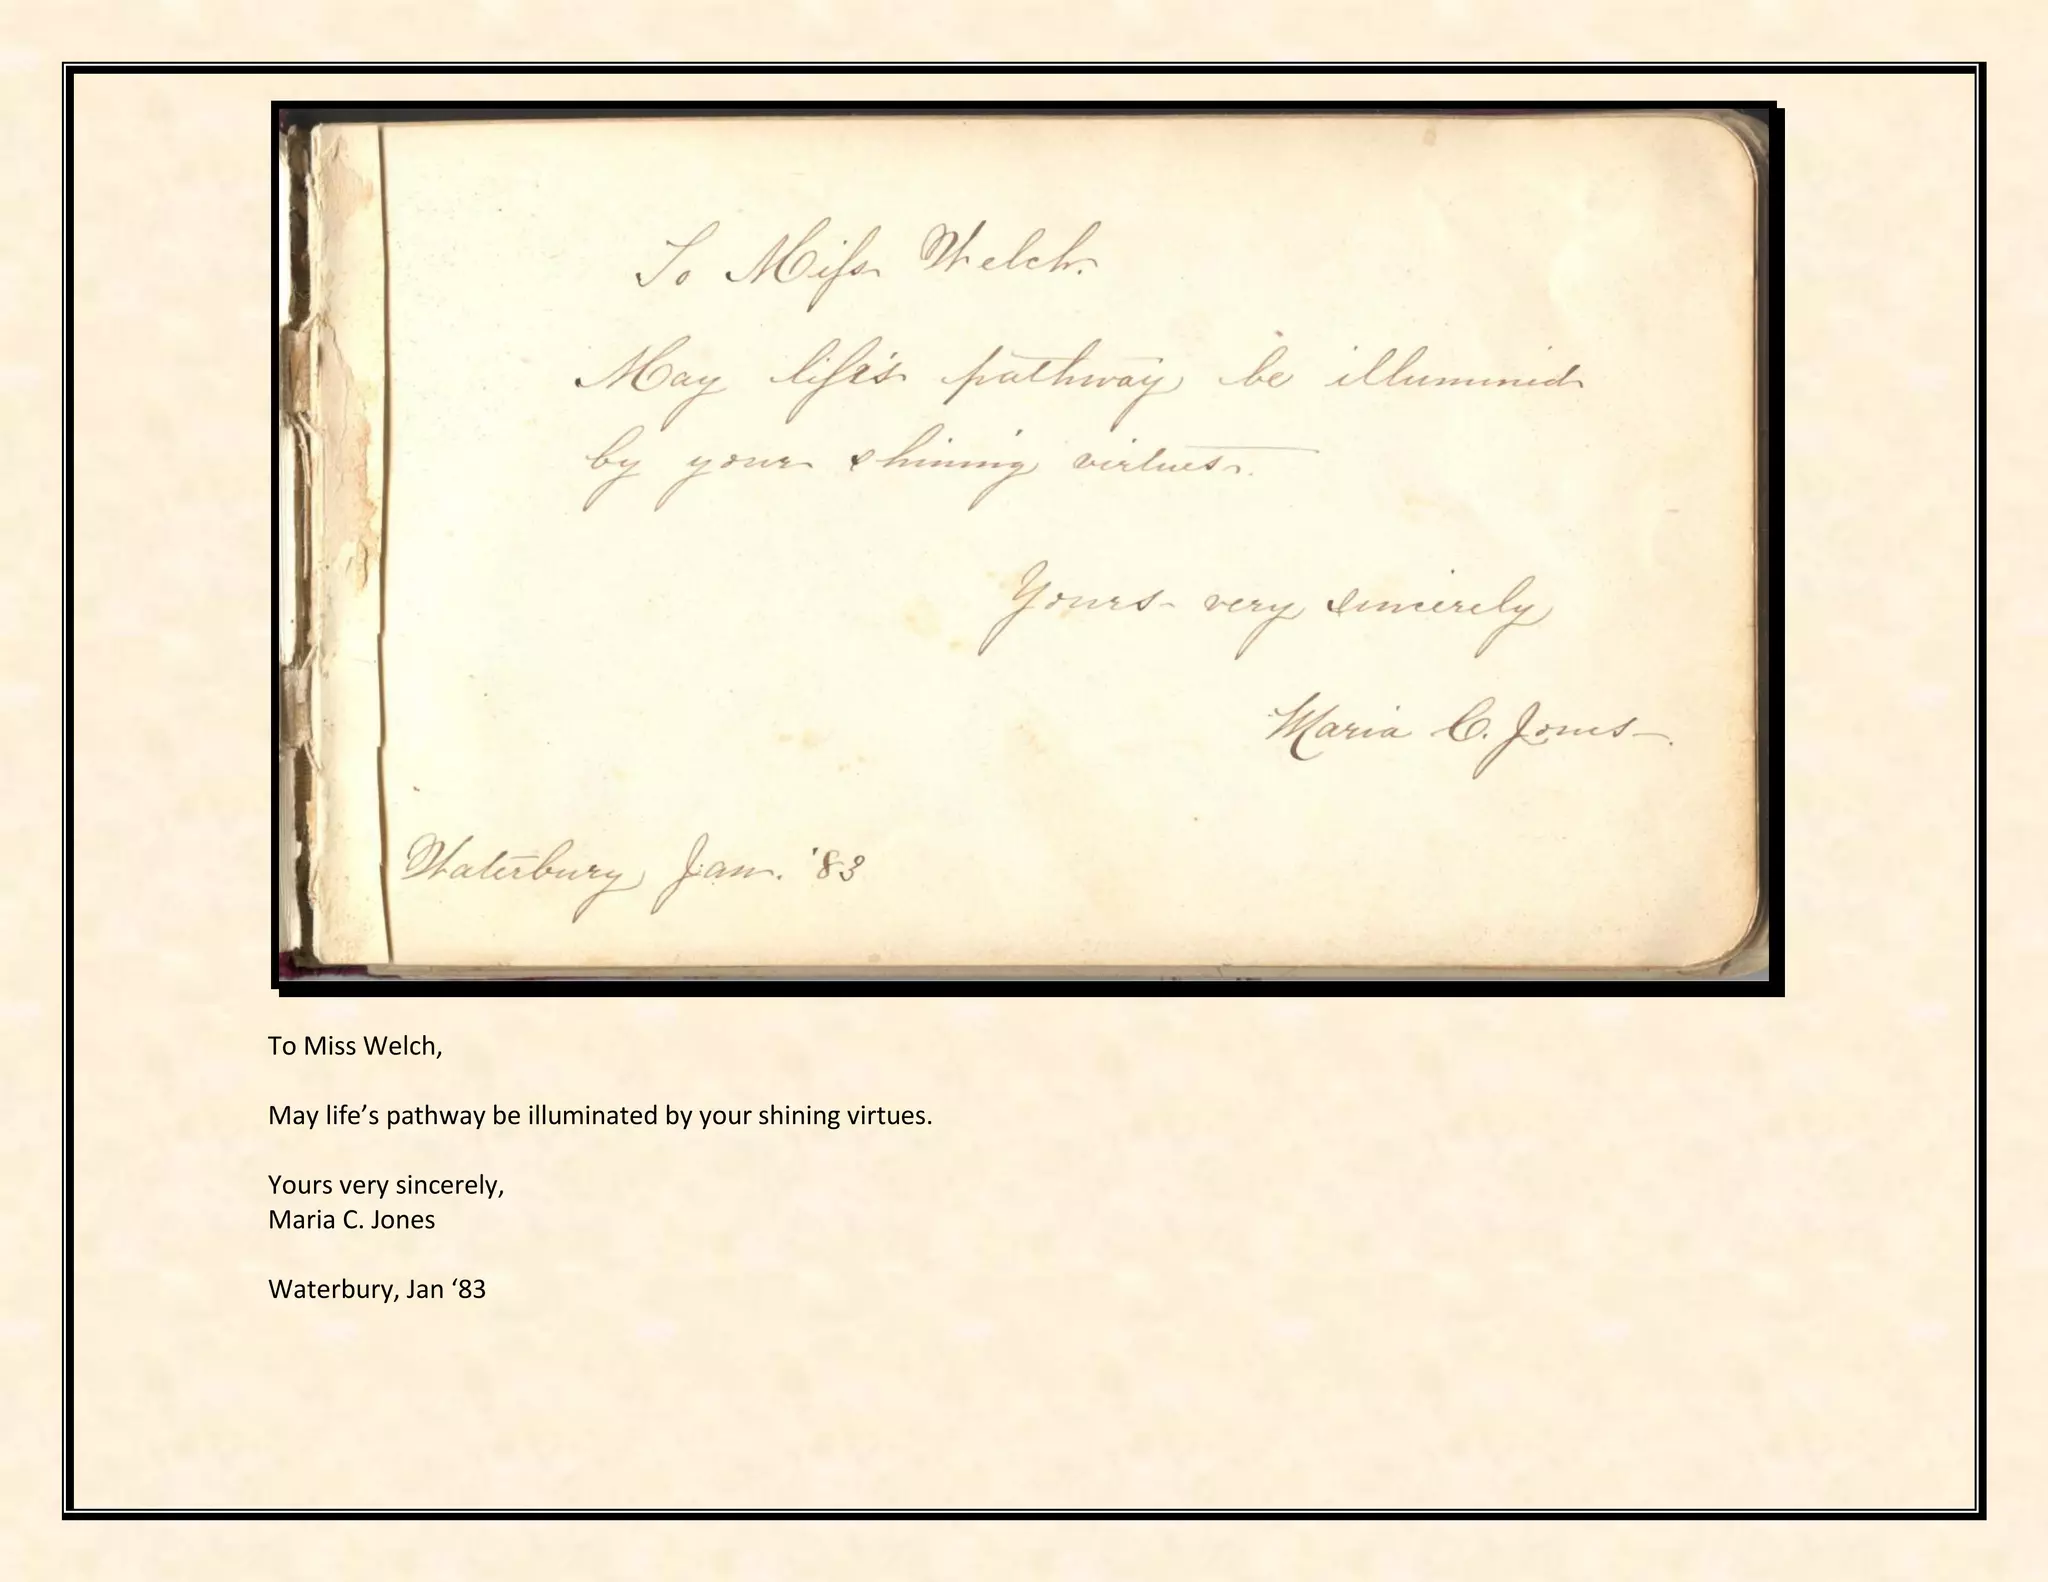 To Miss Welch.
May life's pathway be illumined
by your shining virtues.
Yours very sincerely
Maria C. Jones.
Waterbury Jan. '83
To Miss Welch,
May life’s pathway be illuminated by your shining virtues.
Yours very sincerely,
Maria C. Jones
Waterbury, Jan ‘83